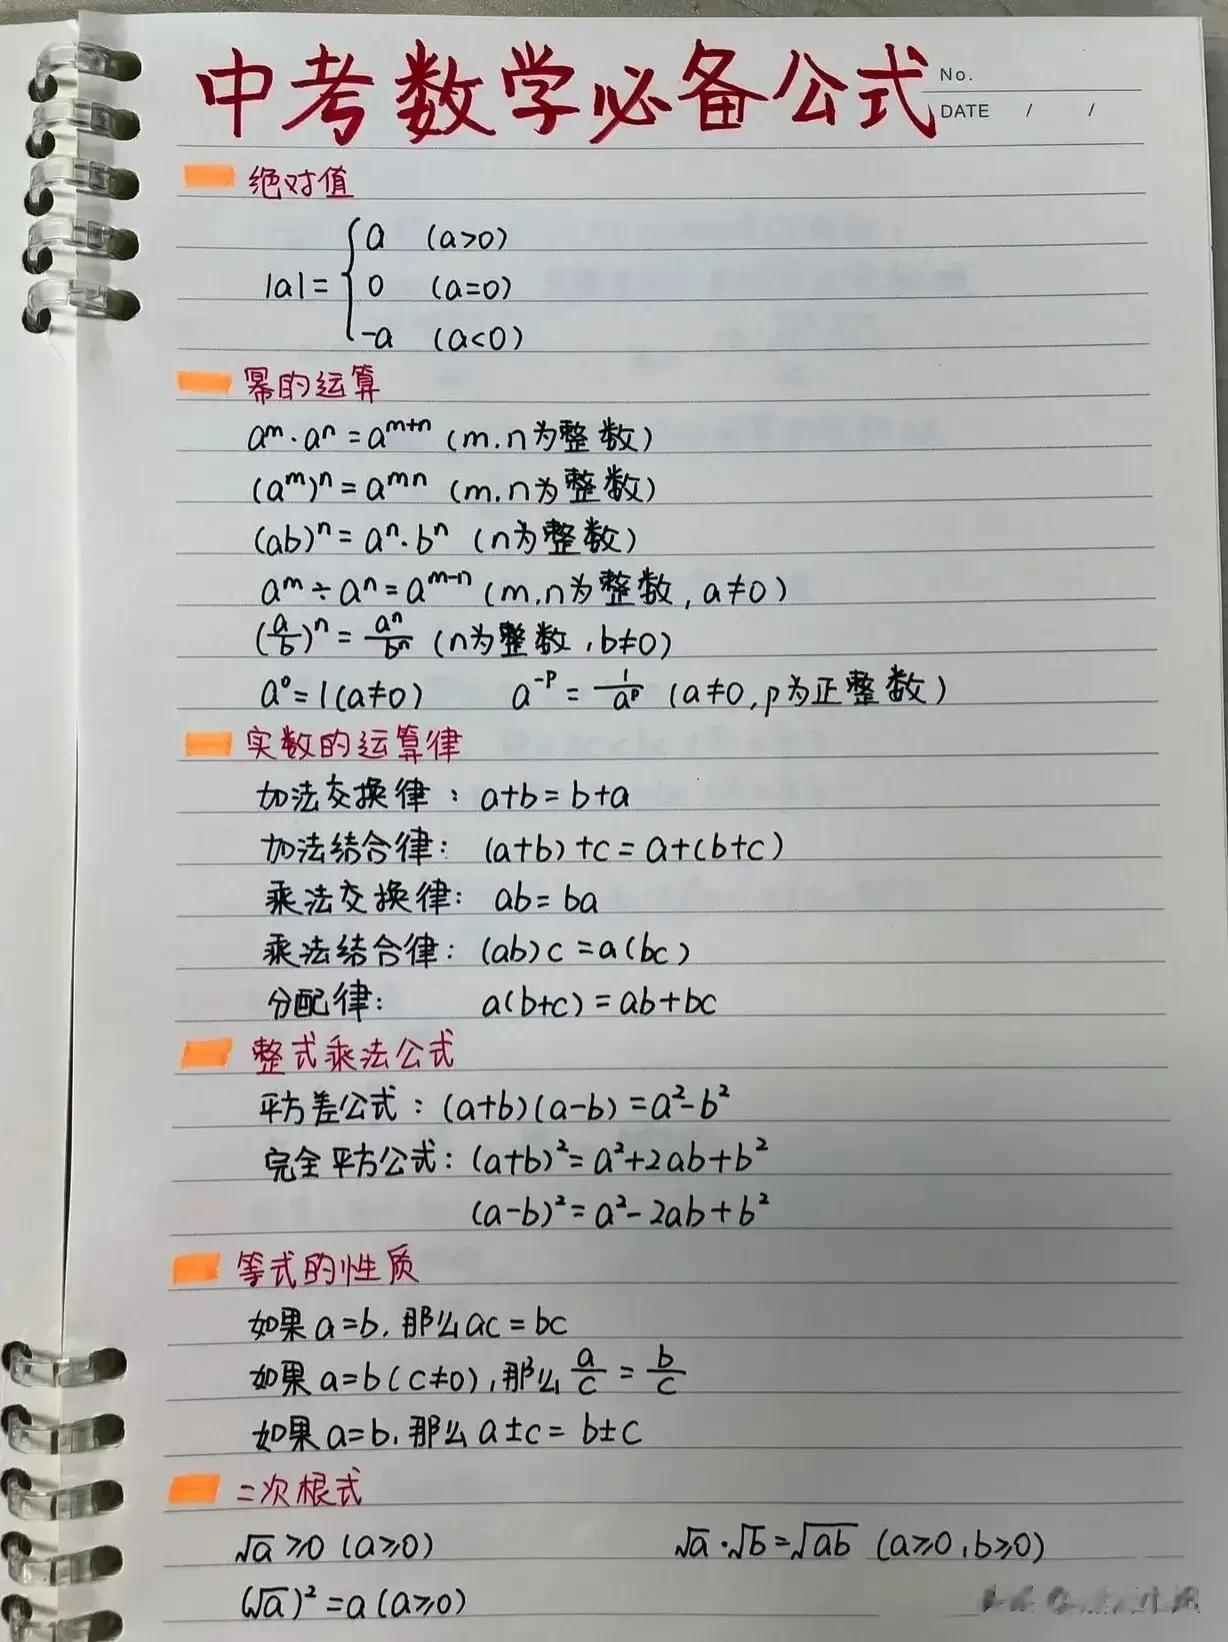 中考数学必备公式
No.
DATE / /
绝对值
|a| = { a (a>0)
0 (a=0)
-a (a<0)
幂的运算
aᵐ·aⁿ = aᵐ⁺ⁿ (m.n为整数)
(aᵐ)ⁿ = aᵐⁿ (m.n为整数)
(ab)ⁿ = aⁿ·bⁿ (n为整数)
aᵐ÷aⁿ = aᵐ⁻ⁿ (m.n为整数, a≠0)
(a/b)ⁿ = aⁿ/bⁿ (n为整数, b≠0)
a⁰=1(a≠0) a⁻ᵖ = 1/aᵖ (a≠0, p为正整数)
实数的运算律
加法交换律: a+b=b+a
加法结合律: (a+b)+c=a+(b+c)
乘法交换律: ab=ba
乘法结合律: (ab)c=a(bc)
分配律: a(b+c)=ab+bc
整式乘法公式
平方差公式: (a+b)(a-b)=a²-b²
完全平方公式: (a+b)²=a²+2ab+b²
(a-b)²=a²-2ab+b²
等式的性质
如果a=b, 那么ac=bc
如果a=b(c≠0), 那么a/c = b/c
如果a=b, 那么a±c=b±c
二次根式
√a≥0 (a≥0) √a·√b=√ab (a≥0, b≥0)
(√a)²=a(a≥0)